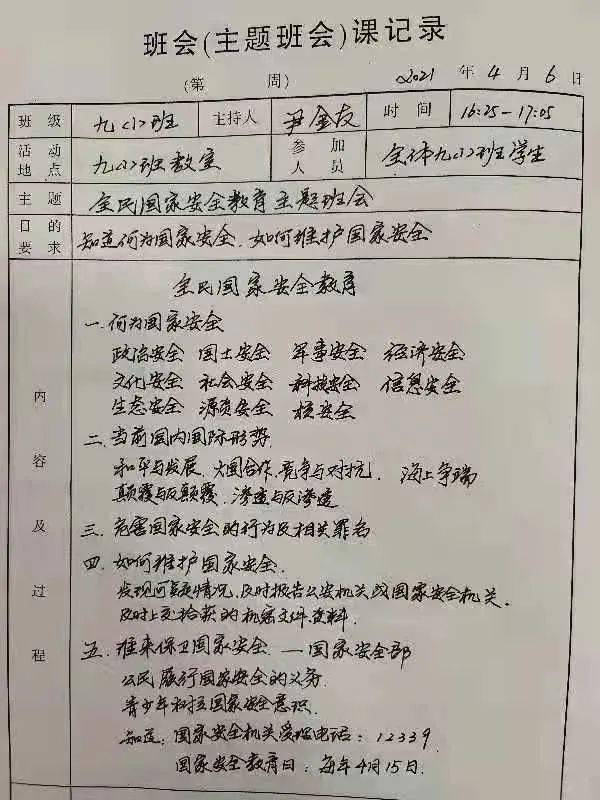 班会(主题班会)课记录
(第 周) 2021 年 4 月 6 日
班级 九<1>班 主持人 尹金友 时间 16:25-17:05
活动地点 九<1>班教室 参加人员 全体九<1>班学生
主题 全民国家安全教育主题班会
目的要求 知道何为国家安全、如何维护国家安全
内容及过程
全民国家安全教育
一.何为国家安全
政治安全 国土安全 军事安全 经济安全
文化安全 社会安全 科技安全 信息安全
生态安全 源资安全 核安全
二.当前国内国际形势
和平与发展、大国合作、竞争与对抗、海上争端
颠覆与反颠覆、渗透与反渗透
三.危害国家安全的行为及相关罪名
四.如何维护国家安全.
发现可疑情况,及时报告公安机关或国家安全机关.
及时上交拾获的机密文件.资料.
五.谁来保卫国家安全 —国家安全部
公民履行国家安全的义务
青少年 国家安全意识.
知道:国家安全机关受理电话:12339
国家安全教育日:每年4月15日.